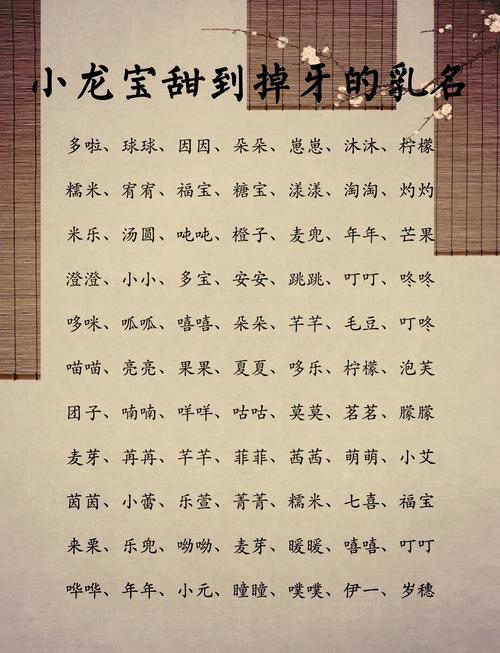 小龙宝甜到掉牙的乳名
多啦、球球、因因、朵朵、崽崽、沐沐、柠檬
糯米、宥宥、福宝、糖宝、漾漾、淘淘、灼灼
米乐、汤圆、吨吨、橙子、麦兜、年年、芒果
澄澄、小小、多宝、安安、跳跳、叮叮、咚咚
哆咪、呱呱、嘻嘻、朵朵、芊芊、毛豆、叮咚
喵喵、亮亮、果果、夏夏、哆乐、柠檬、泡芙
团子、喃喃、咩咩、咕咕、莫莫、茗茗、朦朦
麦芽、苒苒、芊芊、菲菲、茜茜、萌萌、小艾
茵茵、小蕾、乐萱、菁菁、糯米、七喜、福宝
来栗、乐兜、呦呦、麦芽、暖暖、嘻嘻、叮叮
哗哗、年年、小元、瞳瞳、噗噗、伊一、岁穗